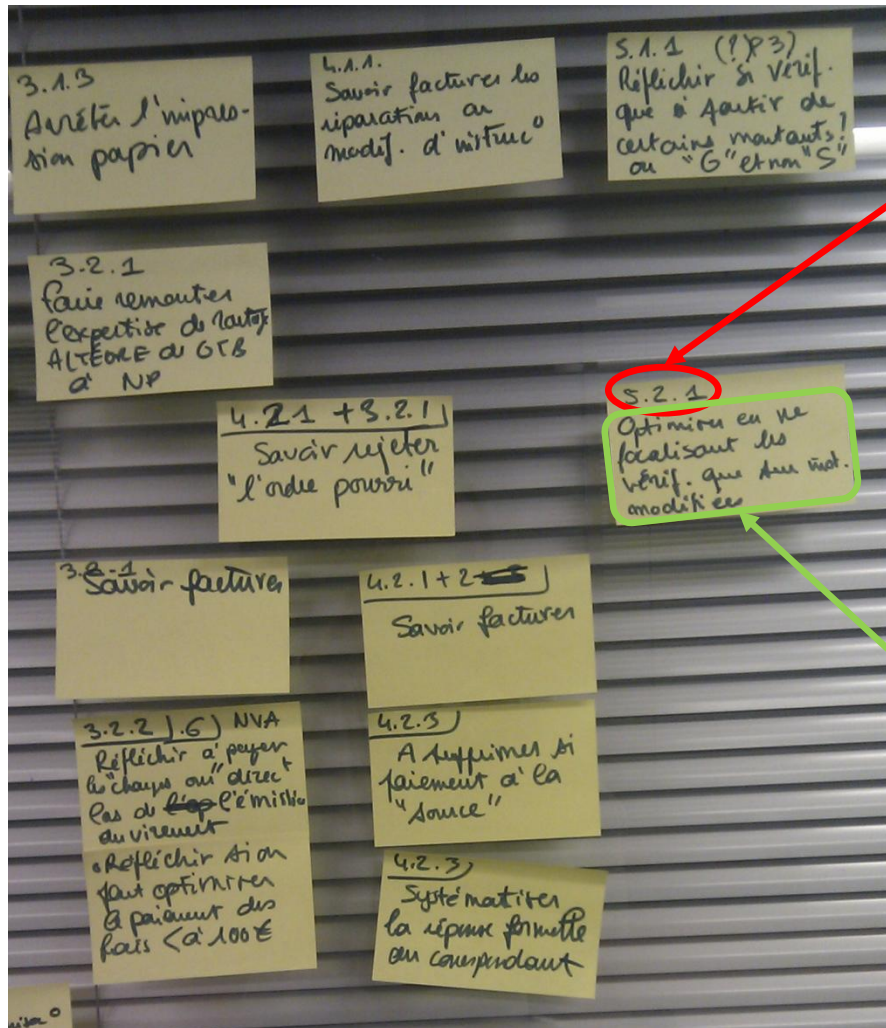 3.1.3
Arrêter l'impres-
sion papier
4.1.1.
Savoir facturer les
réparations ou
modif. d'instruc°
5.1.1 (?) P3)
Réfléchir si vérif.
que à partir de
certains montants?
ou "G" et non "S"
3.2.1
faire remonter
l'expertise de
ALTEORE du GTB
à NP
4.2.1 + 3.2.1
Savoir rejeter
"l'ordre pourri"
5.2.1
Optimiser en ne
focalisant les
vérif. que sur inst.
modifiées
3.2.1
Savoir facturer
4.2.1 + 2
Savoir facturer
3.2.2 .6) NVA
Réfléchir à payer
les "charges our" direct
lors de l'émission
du virement
• Réfléchir si on
peut optimiser
le paiement des
frais < à 100 €
4.2.3)
A supprimer si
paiement à la
"source"
4.2.3)
Systématiser
la réponse formelle
au correspondant